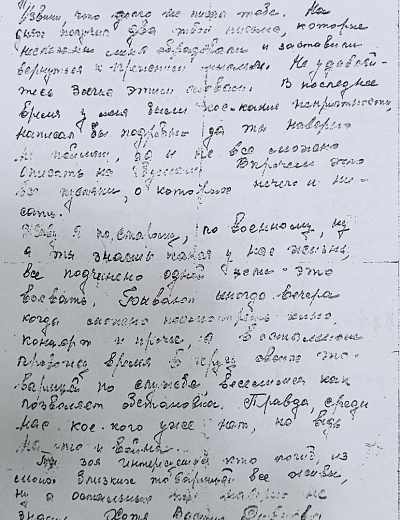 Извини, что долго не писал тебе. На
днях получил два твои письма, которые
несказанно меня обрадовали и заставили
вернуться к прежним мыслям. Не удивляй-
тесь Зоечка этим словам. В последнее
время у меня были кое-какие неприятности,
написал бы подробно да ты наверно
не поймешь, да и не все можно
описать на бумаге. Впрочем это
все пустяки, о которых нечего и пи-
сать.
Живу я по старому, по военному, ну
а ты знаешь какая у нас жизнь,
все подчинено одной цели - это
воевать. Бывают иногда вечера
когда можно посмотреть кино,
концерт и прочее, а в остальном
провожу время в кругу своих то-
варищей по службе веселимся как
позволяет обстановка. Правда, среди
нас кое-кого уже нет, но ведь
на то и война.
Ты Зоя интересуешься кто погиб, из
моих близких товарищей все живы,
ну а остальных ты наверно не
знаешь. Хотя